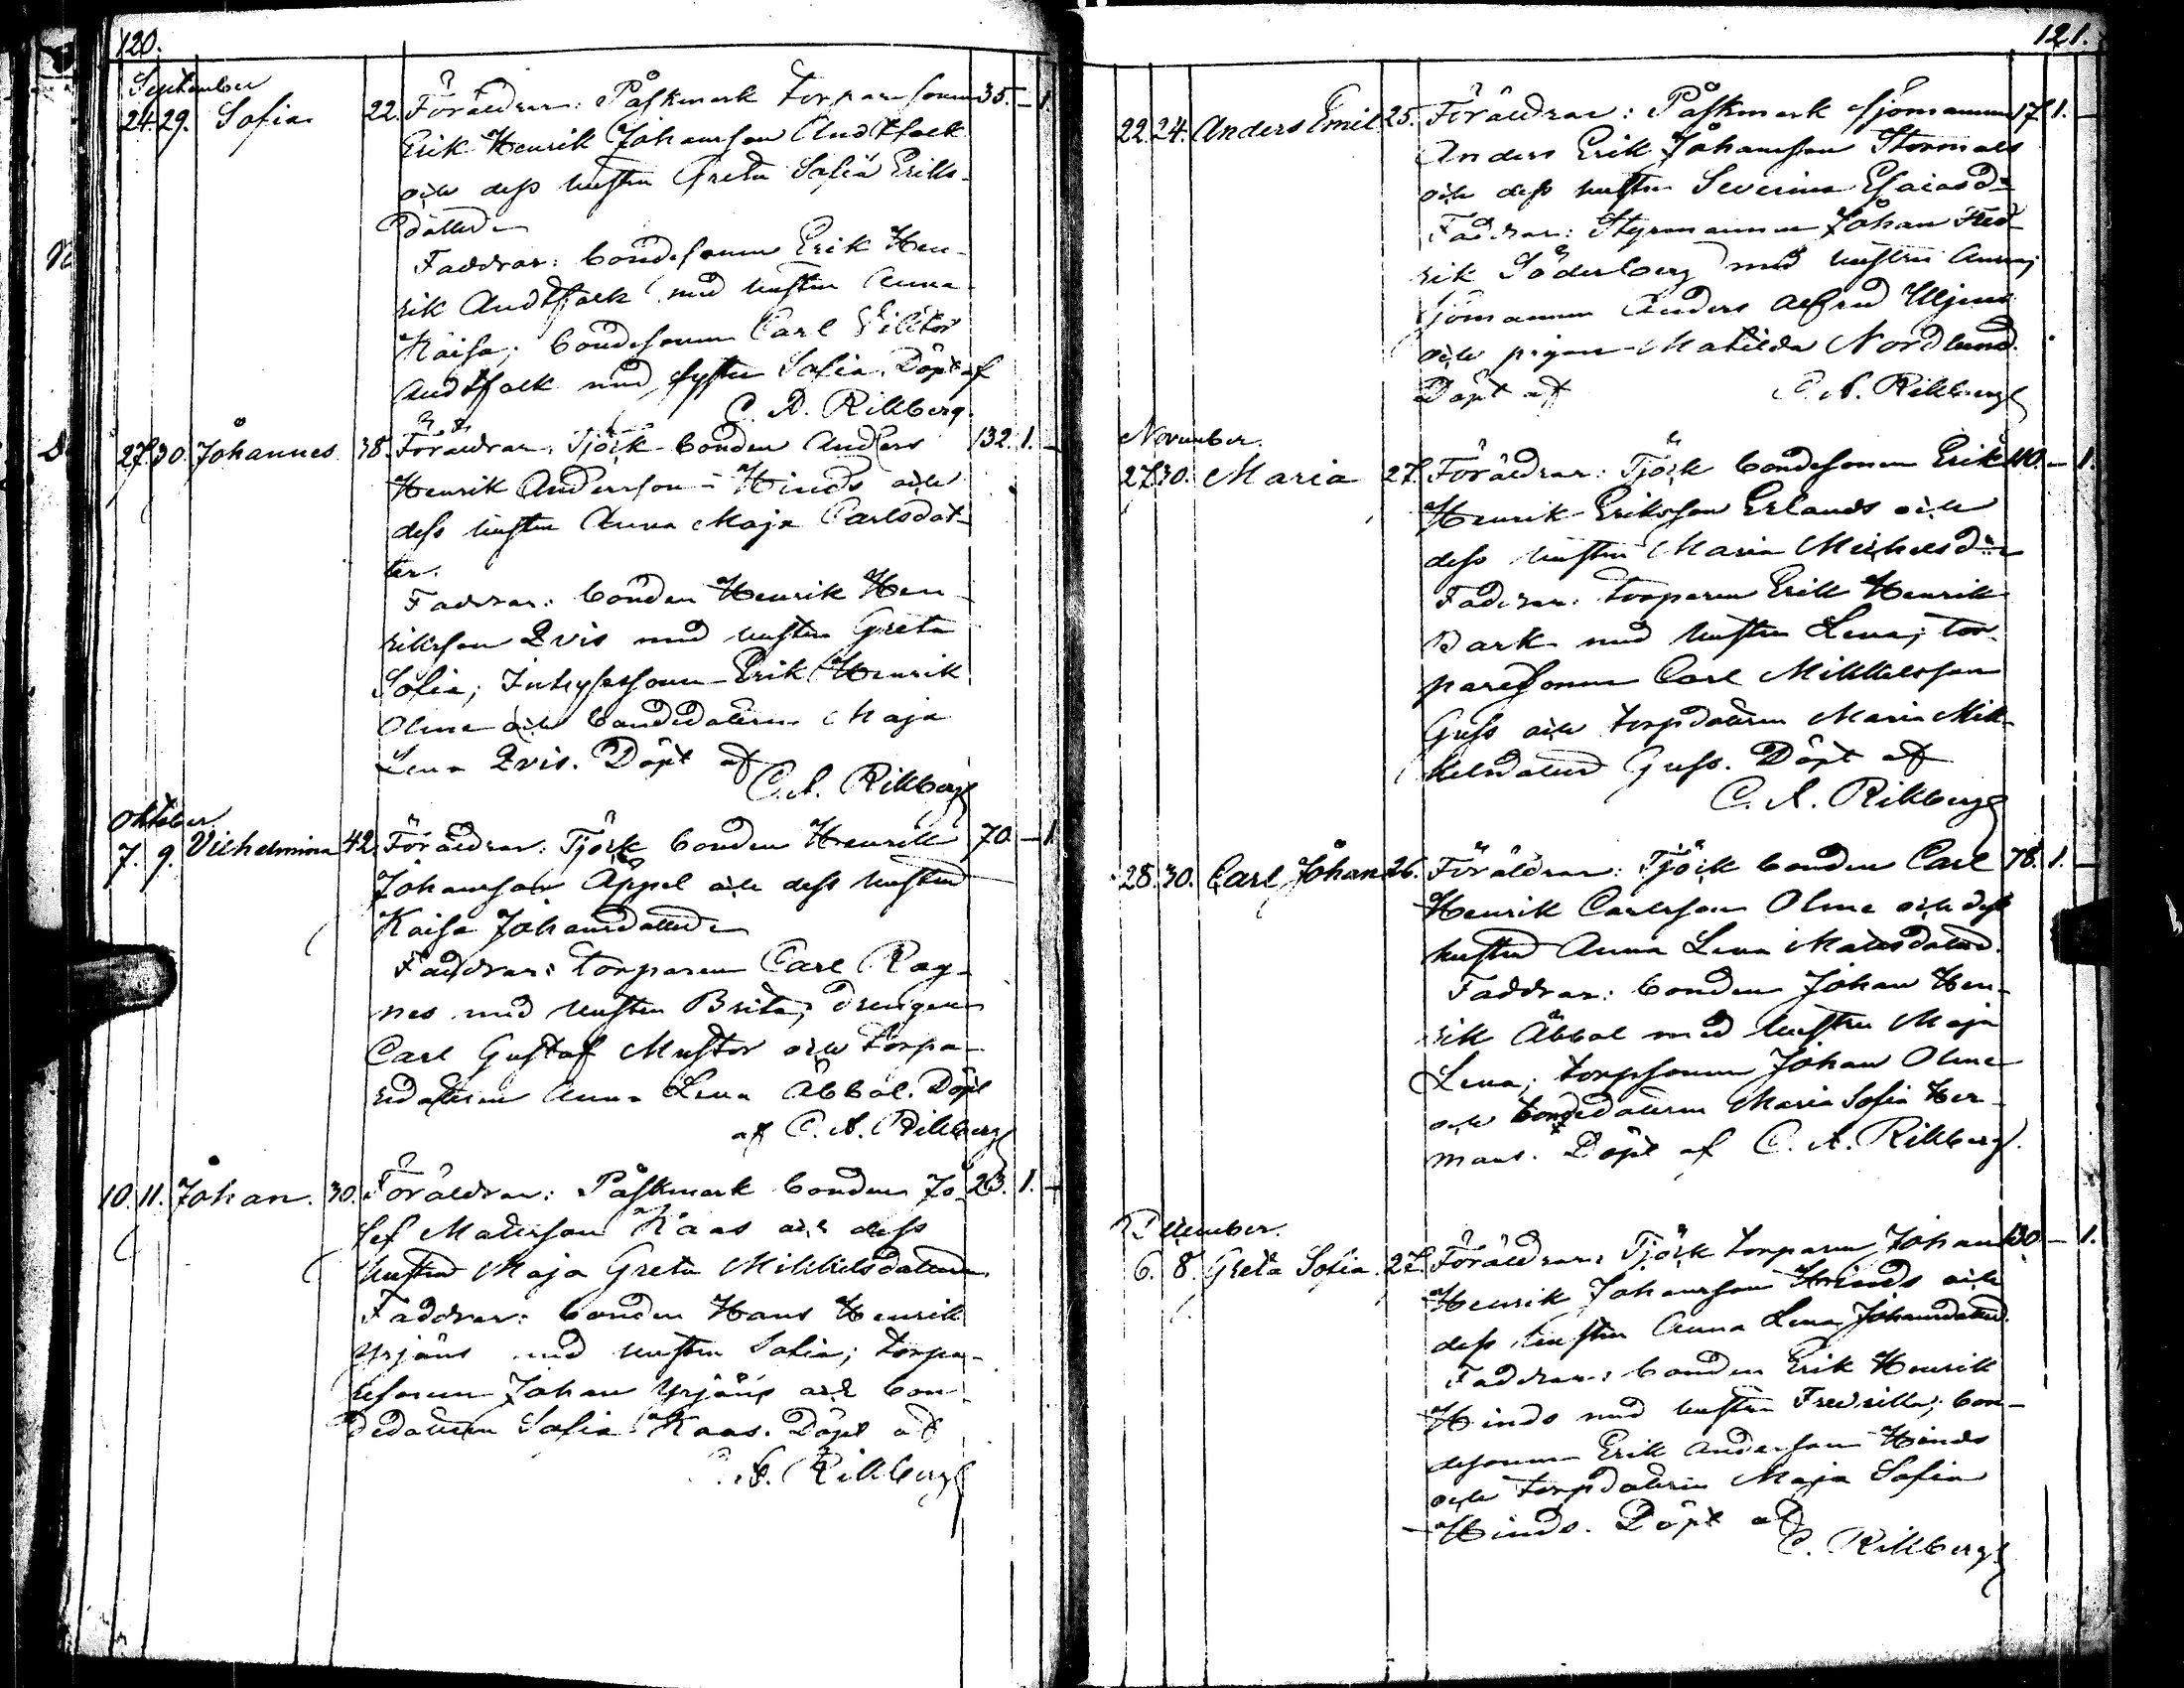 120.
September
24. 29. Sofia 22. Föräldrar: Påskmark torparesonen 35. – 1.
Erik Henrik Johansson Andtfolk
och dess hustru Greta Sofia Eriks-
dotter
Faddrar: bondesonen Erik Hen-
rik Andtfolk med hustru Anna
Kaisa; bondesonen Carl Viktor
Andtfolk med syster Sofia. Döpt af
C. A. Rikberg.
27. 30. Johannes 38. Föräldrar: Tjöck bonden Anders 132. 1. –
Henrik Andersson Hinds och
dess hustru Anna Maja Carlsdot-
ter.
Faddrar: bonden Henrik Hen-
riksson Qvis med hustru Greta
Sofia; Erik Henrik
Olme och bondedottren Maja
Lena Qvis. Döpt af
C. A. Rikberg
Oktober.
7. 9. Vilhelmina 42. Föräldrar: Tjöck bonden Henrik 70. – 1.
Johansson Äppel och dess hustru
Kaisa Johansdotter
Faddrar: torparen Carl Rag-
nes med hustru Brita; drengen
Carl Gustaf Mustor och torpa-
redottren Anna Lena Äbbol. Döpt
af C. A. Rikberg
10. 11. Johan. 30. Föräldrar: Påskmark bonden Jo- 23. 1. –
sef Matsson Kaas och dess
hustru Maja Greta Mikkelsdotter
Faddrar: bonden Hans Henrik
Yrjäns med hustru Sofia; torpa-
resonen Johan Yrjäns och bon-
dedottren Sofia Kaas. Döpt af
C. A. Rikberg
121.
22. 24. Anders Emil 25. Föräldrar: Påskmark sjömannen 17. 1. –
Anders Erik Johansson Stormats
och dess hustru Severina Esaiasdr
Faddrar: Styrmannen Johan Fred-
rik Söderberg med hustru Anna;
sjömannen Anders Alfred Uljens
och pigan Matilda Nordlund.
Döpt af C. A. Rikberg
November.
27. 30. Maria 27. Föräldrar: Tjöck bondesonen Erik 110. – 1.
Henrik Eriksson Erlands och
dess hustru Maria Michelsdr
Faddrar: torparen Erik Henrik
Bark med hustru Lena; tor-
paresonen Carl Mikkelsson
Guss och torpdottren Maria Mik-
kelsdotter Guss. Döpt af
C. A. Rikberg
28. 30. Carl Johan 26. Föräldrar: Tjöck bonden Carl 78. 1. –
Henrik Carlsson Olme och dess
hustru Anna Lena Matsdotter.
Faddrar: bonden Johan Hen-
rik Äbbol med hustru Maja
Lena; torpsonen Johan Olme
och bondedottren Maria Sofia Her-
mans. Döpt af C. A. Rikberg.
December.
6. 8. Greta Sofia. 27. Föräldrar: Tjöck torparen Johan 130. – 1.
Henrik Johansson Hinds och
dess hustru Anna Lena Johansdotter.
Faddrar: bonden Erik Henrik
Hinds med hustru Fredrika; bon-
desonen Erik Andersson Hinds
och torpdottren Maja Sofia
Hinds. Döpt af
C. Rikberg